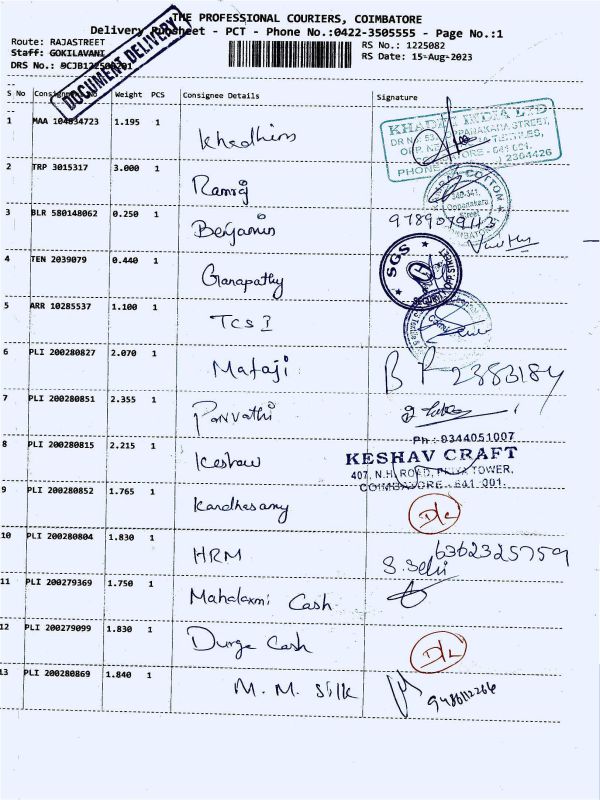 THE PROFESSIONAL COURIERS, COIMBATORE
Delivery Runsheet - PCT - Phone No.:0422-3505555 - Page No.:1
Route: RAJASTREET
RS No.: 1225082
Staff: GOKILAVANI
RS Date: 15-Aug-2023
DRS No.:
DOCUMENT DELIVERY
S No Consignment No Weight PCS Consignee Details Signature
1 MAA 104834723 1.195 1 Khadhims
KHADIM INDIA LTD
OPPANAKARA STREET,
PHONE 2384426
2 TRP 3015317 3.000 1 Ramraj
COTTON
340-341,
Oppanakara
Street
COIMBATORE
3 BLR 580148062 0.250 1 Benjamin 9789079113
4 TEN 2039079 0.440 1 Ganapathy
SGS
5 ARR 10285537 1.100 1 TCS I
6 PLI 200280827 2.070 1 Mataji B P 2383184
7 PLI 200280851 2.355 1 Parvathi
8 PLI 200280815 2.215 1 Keshav
Ph : 9344051007
KESHAV CRAFT
407, N.H. ROAD, PRIYA TOWER,
COIMBATORE - 641 001.
9 PLI 200280852 1.765 1 Kandhasamy D/L
10 PLI 200280804 1.830 1 HRM S. Selvi 6362325759
11 PLI 200279369 1.750 1 Mahalaxmi Cash
12 PLI 200279099 1.830 1 Durga Cash D/L
13 PLI 200280869 1.840 1 M. M. Silk 9486112266